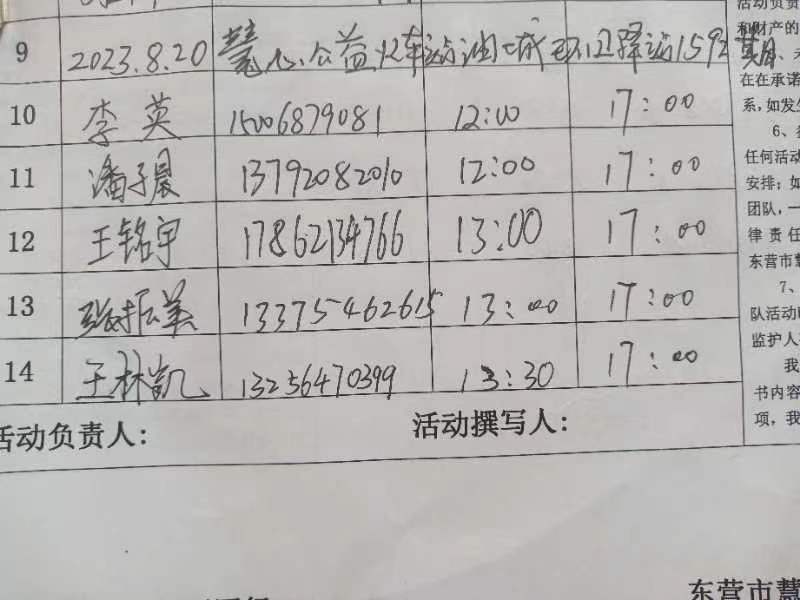 9 2023.8.20 慧心公益火车站油城环卫驿站1592期
10 李英 15006879081 12:00 17:00
11 潘子晨 13792082010 12:00 17:00
12 王铭宇 17862134766 13:00 17:00
13 张振美 13375462615 13:00 17:00
14 王林凯 13256470399 13:30 17:00
活动负责人: 活动撰写人:
活动负责
和财产的
在在承诺
系,如发生
6、
任何活动
安排;如
团队,一
律责任
东营市慧
7、
队活动
监护人
我
书内容
项,我
东营市慧